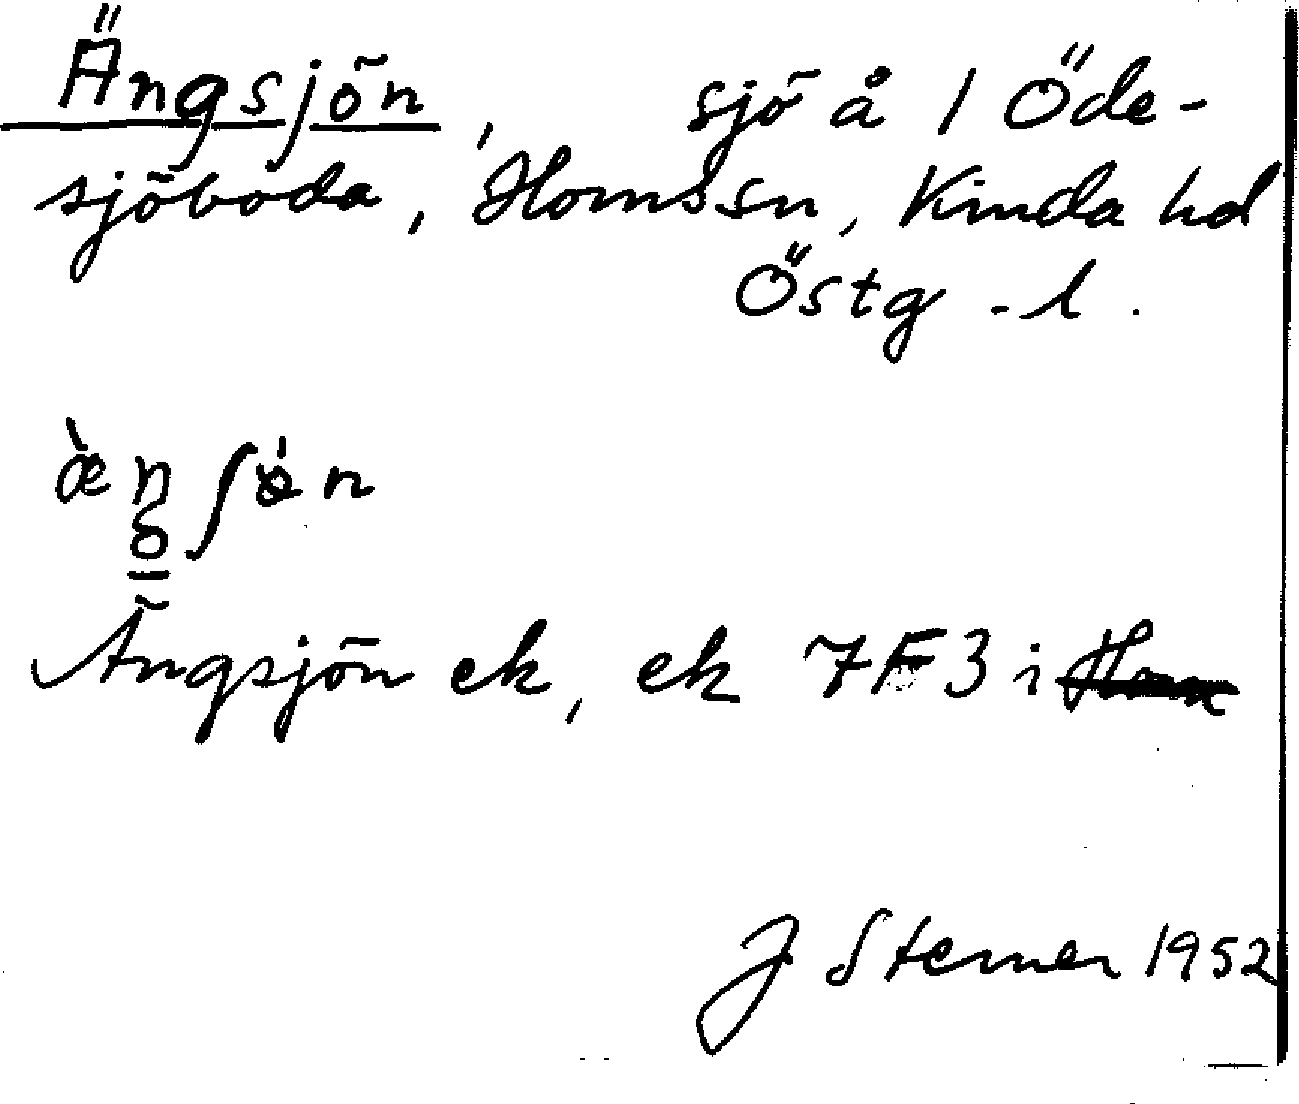 Ängsjön, sjö å 1 Öde-
sjöboda, Homssn, Kinda hd
Östg-l.
Ängsjön ek, ek 7F3 i
J Sterner 1952